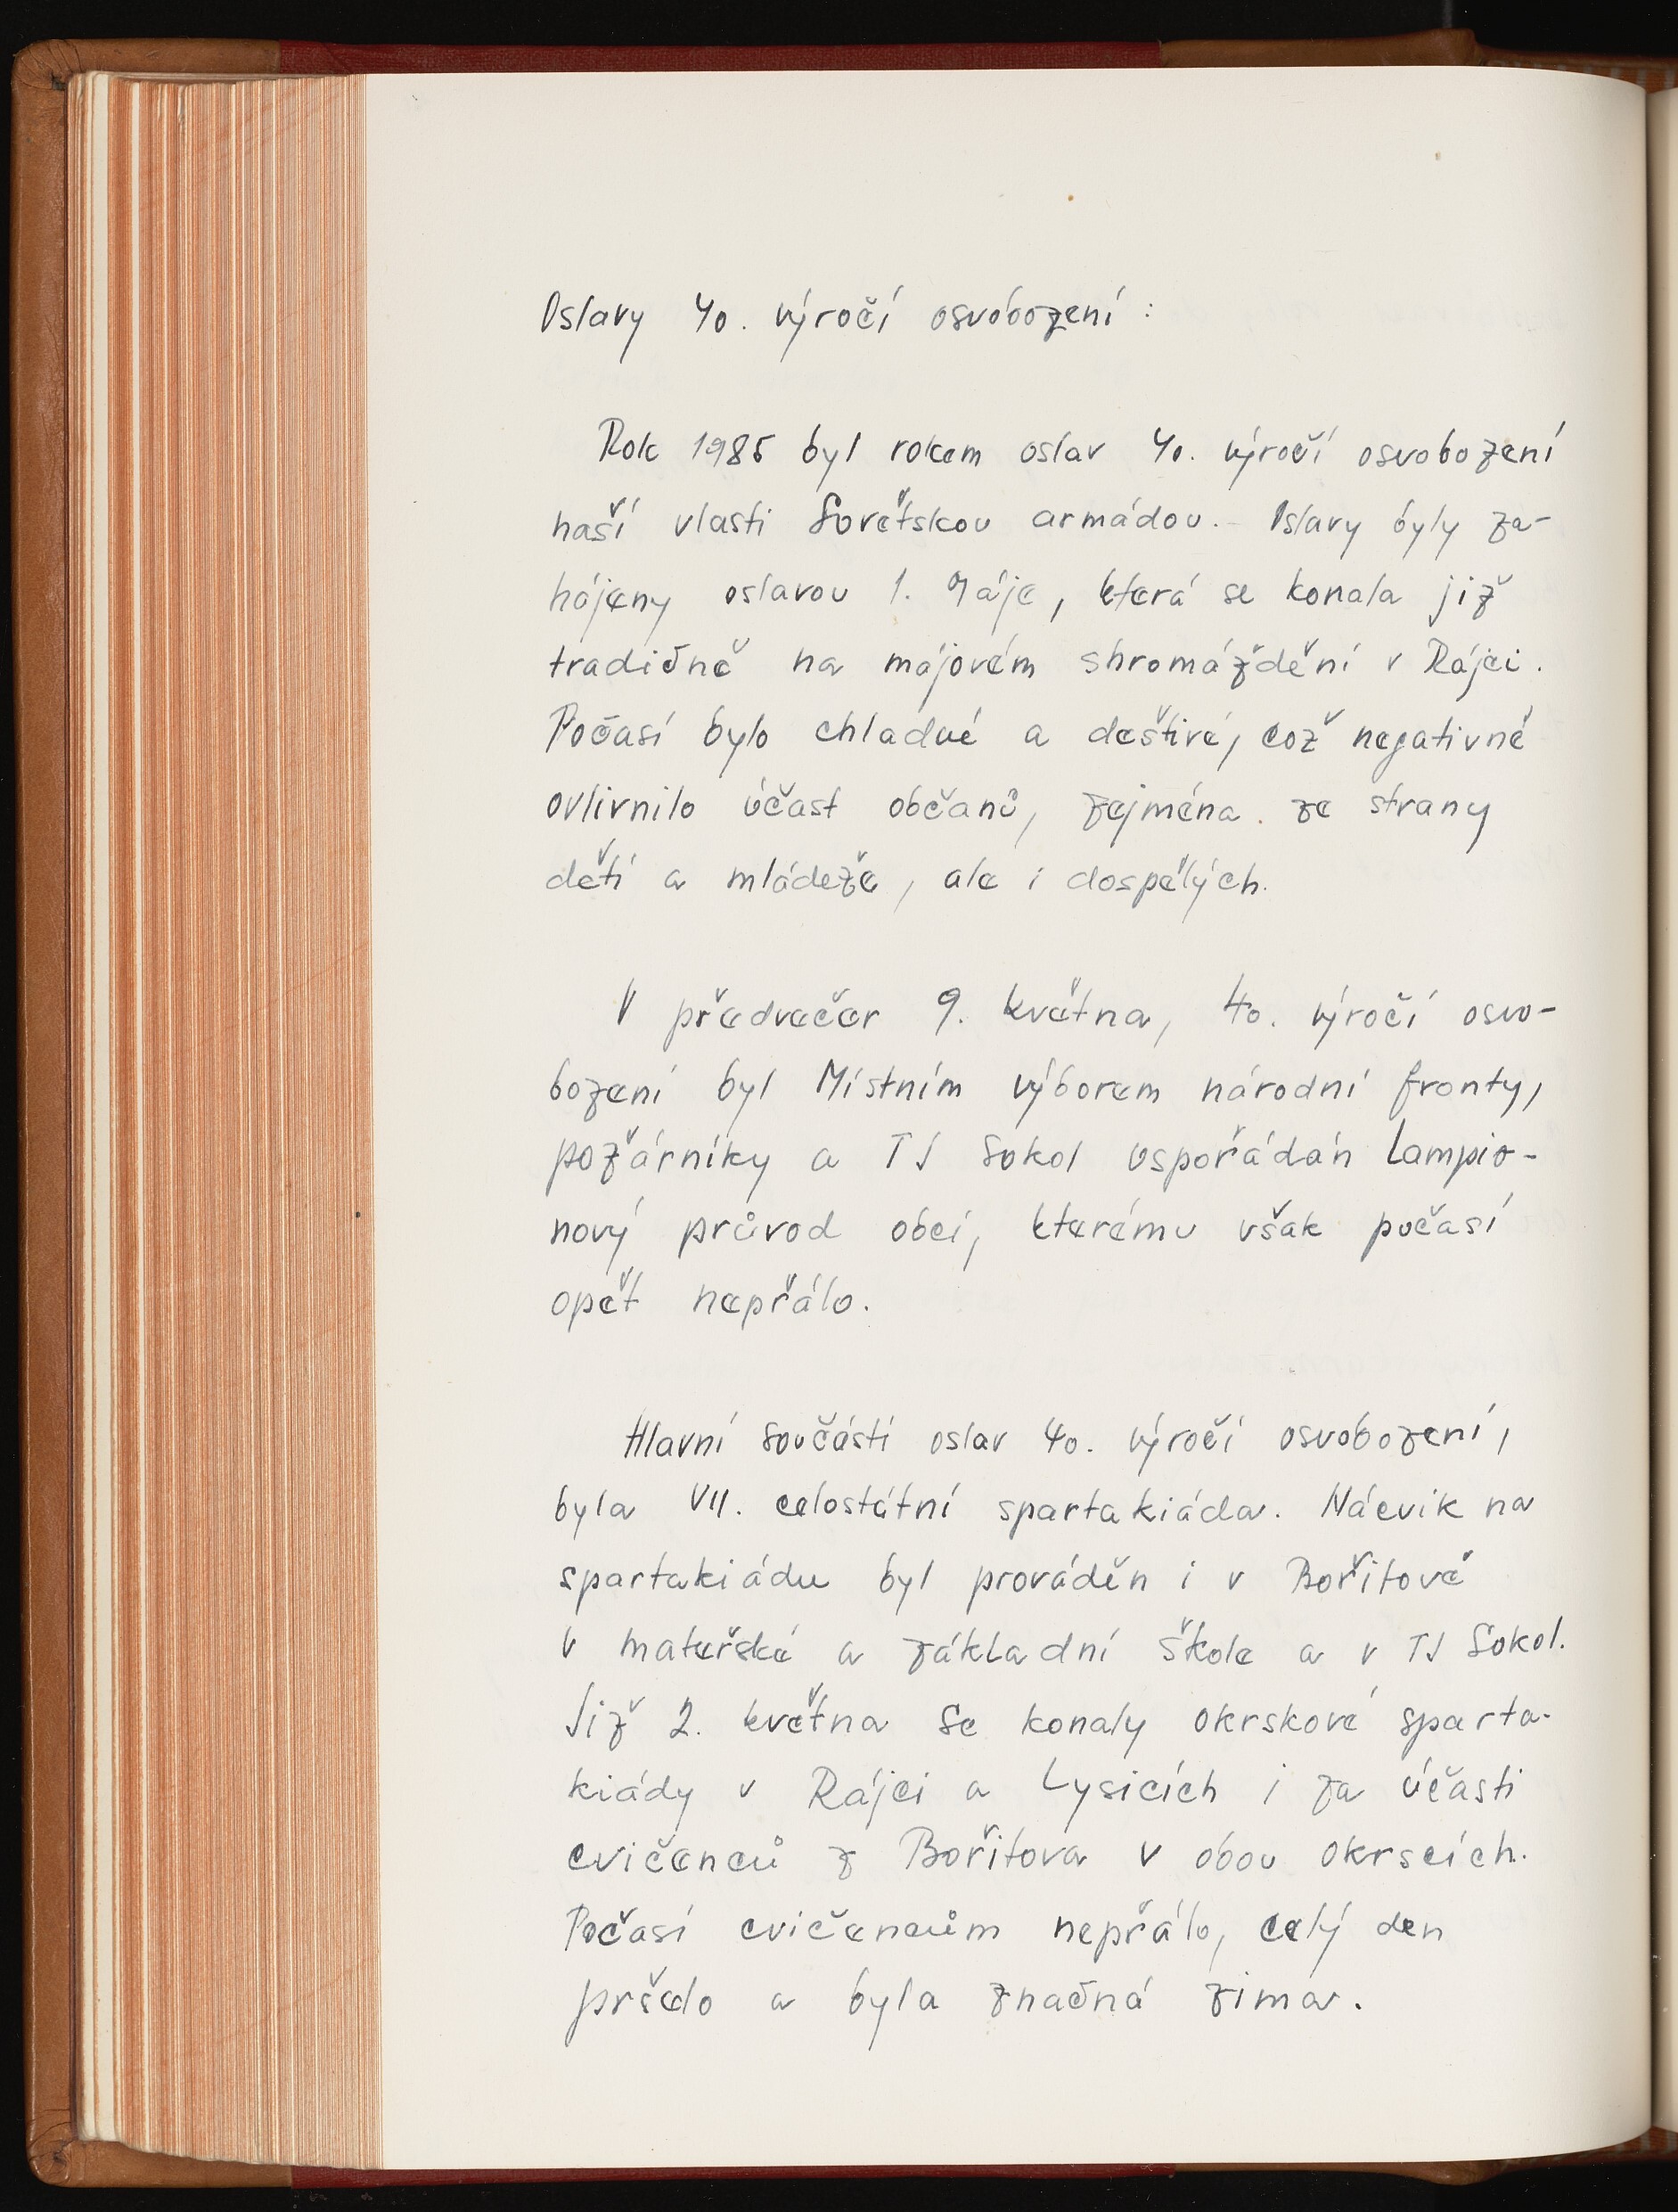 Oslavy 40. výročí osvobození :
Rok 1985 byl rokem oslav 40. výročí osvobození
naší vlasti Sovětskou armádou. Oslavy byly za-
hájeny oslavou 1. Máje, která se konala již
tradičně na májovém shromáždění v Rájci.
Počasí bylo chladné a deštivé, což negativně
ovlivnilo účast občanů, zejména ze strany
dětí a mládeže, ale i dospělých.
V předvečer 9. května, 40. výročí osvo-
bození byl Místním výborem národní fronty,
požárníky a TJ Sokol uspořádán Lampio-
nový průvod obcí, kterému však počasí
opět nepřálo.
Hlavní součástí oslav 40. výročí osvobození,
byla VII. celostátní spartakiáda. Nácvik na
spartakiádu byl prováděn i v Bořitově
v mateřské a základní škole a v TJ Sokol.
Již 2. května se konaly okrskové sparta-
kiády v Rájci a Lysicích i za účasti
cvičenců z Bořitova v obou okrscích.
Počasí cvičencům nepřálo, celý den
pršelo a byla značná zima.